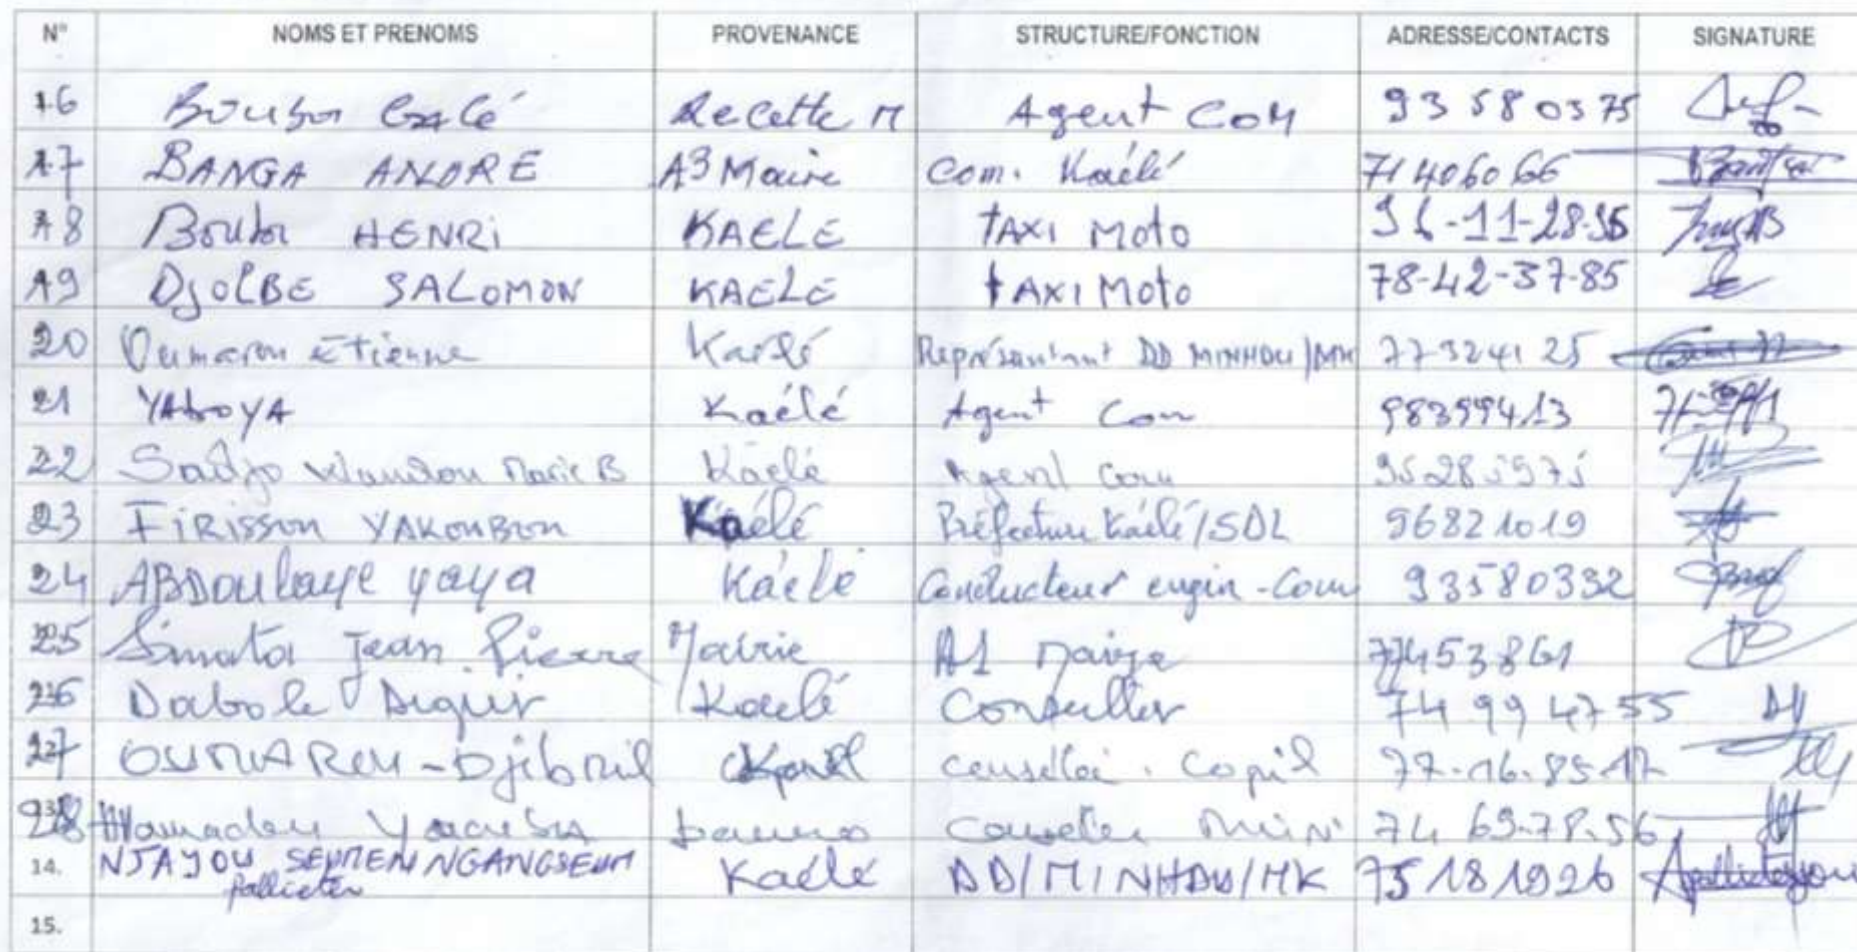 N° NOMS ET PRENOMS PROVENANCE STRUCTURE/FONCTION ADRESSE/CONTACTS SIGNATURE
16 Bouba Recette M Agent COM 93580375
17 BANGA ANDRE A3 Maire Com. Kaélé 71406066
18 Bouba HENRi KAELE tAXI Moto 11-28
19 DJOLBE SALOMON KAELE tAXI Moto 78-42-37-85
20 Oumarou Etienne Kaélé Représentant DD MINHDU/MK 77324125
21 YAboyA Kaélé Agent Com 98399413
22 Sadjo Marie B Kaélé Agent Com
23 FiRiSSOU YAKOUBOU Kaélé Préfecture Kaélé/SDL 96821019
24 ABDoulaye yaya Kaélé Conducteur engin-Com 93580332
25 Jean Pierre Mairie A1 77453861
26 Kaélé Conseiller 74 99 47 55
27 OUMAROU-Djibril copil 77-16-85-17
28 Hamadou 74 69-78-56
14. NJAYOU SEUMEN NGANGSEUM Kaélé DD/MINHDU/MK 75181926
pallieter
15.